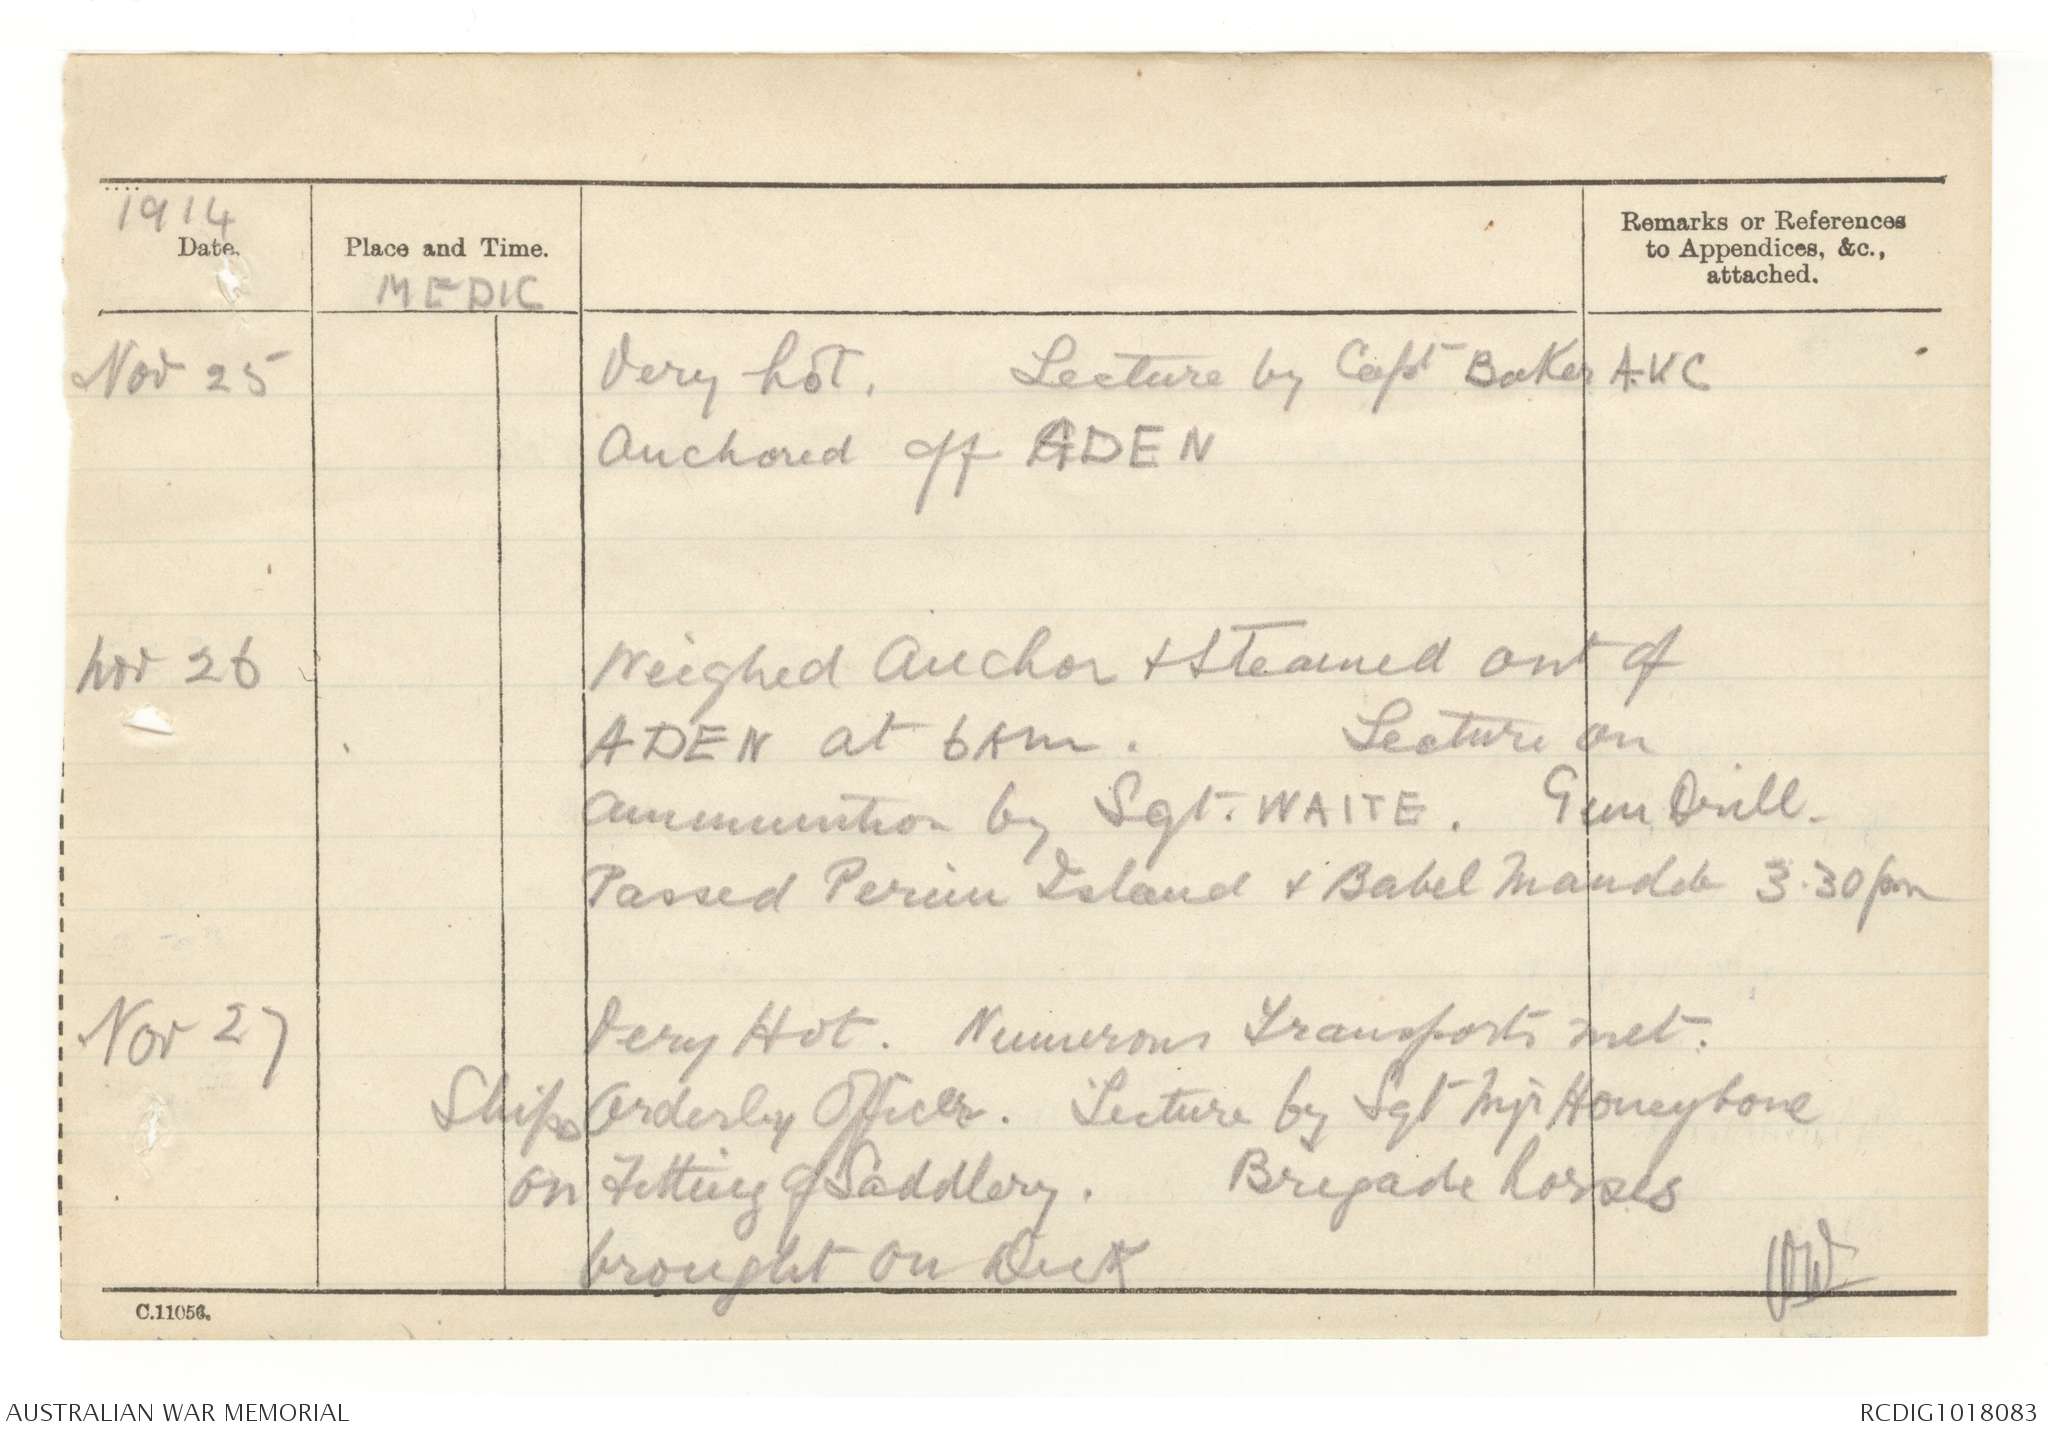 1914
Date.
Place and Time.
MEDIC
Remarks or References
to Appendices, &c.,
attached.
Nov 25 Very hot. Lecture by Capt Baker A.V.C
Anchored off ADEN
Nov 26 Weighed Anchor & Steamed out of
ADEN at 6 Am. Lecture on
Ammunition by Sgt. WAITE. Gun Drill.
Passed Perim Island & Babel Mandeb 3.30 pm
Nov 27 Very Hot. Numerous Transports met.
Ships Orderly Officer. Lecture by Sgt Mjr Honeybone
on Fitting of Saddlery. Brigade horses
brought on Deck
C.11056.
AUSTRALIAN WAR MEMORIAL
RCDIG1018083